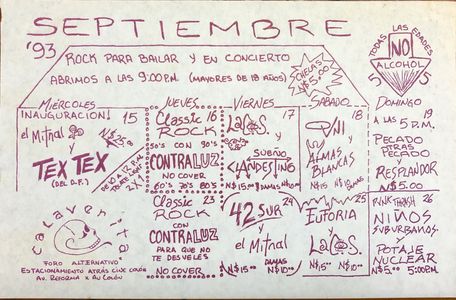 SEPTIEMBRE
'93
ROCK PARA BAILAR Y EN CONCIERTO
ABRIMOS A LAS 9:00 P.M. (MAYORES DE 18 AÑOS)
N$5.00
TODAS LAS EDADES
NO
ALCOHOL
5 5
MIÉRCOLES
INAUGURACION! 15
el Mitnal
y N$25.00
TEX TEX
(DEL D.F.)
2X
JUEVES
Classic 16
ROCK
50's CON 90's
CONTRALUZ
NO COVER
60's 70's 80's
VIERNES
17
LOCOS.
y SUEÑO
CLANDESTINO
N$15.00 DAMAS N$10.00
SABADO
18
y
ALMAS
BLANCAS
N$15
DOMINGO
19
A LAS
5 P.M.
PECADO
TRAS
PECADO
Y
RESPLANDOR
N$5.00
calaverixa
FORO ALTERNATIVO
ESTACIONAMIENTO ATRÁS CLUX COLÓN
AV. REFORMA X AV. COLÓN
Classic 23
ROCK
CON
CONTRALUZ
PARA QUE NO
TE DESVELES
NO COVER
24
42 SUR
y
el Mitnal
N$15.00 DAMAS N$10.00
25
EUFORIA
y
LOCOS.
N$15.00 DAMAS N$10.00
PUNK THRASH 26
NIÑOS
SUBURBANOS
y
POTAJE
NUCLEAR
N$5.00 5:00 P.M.